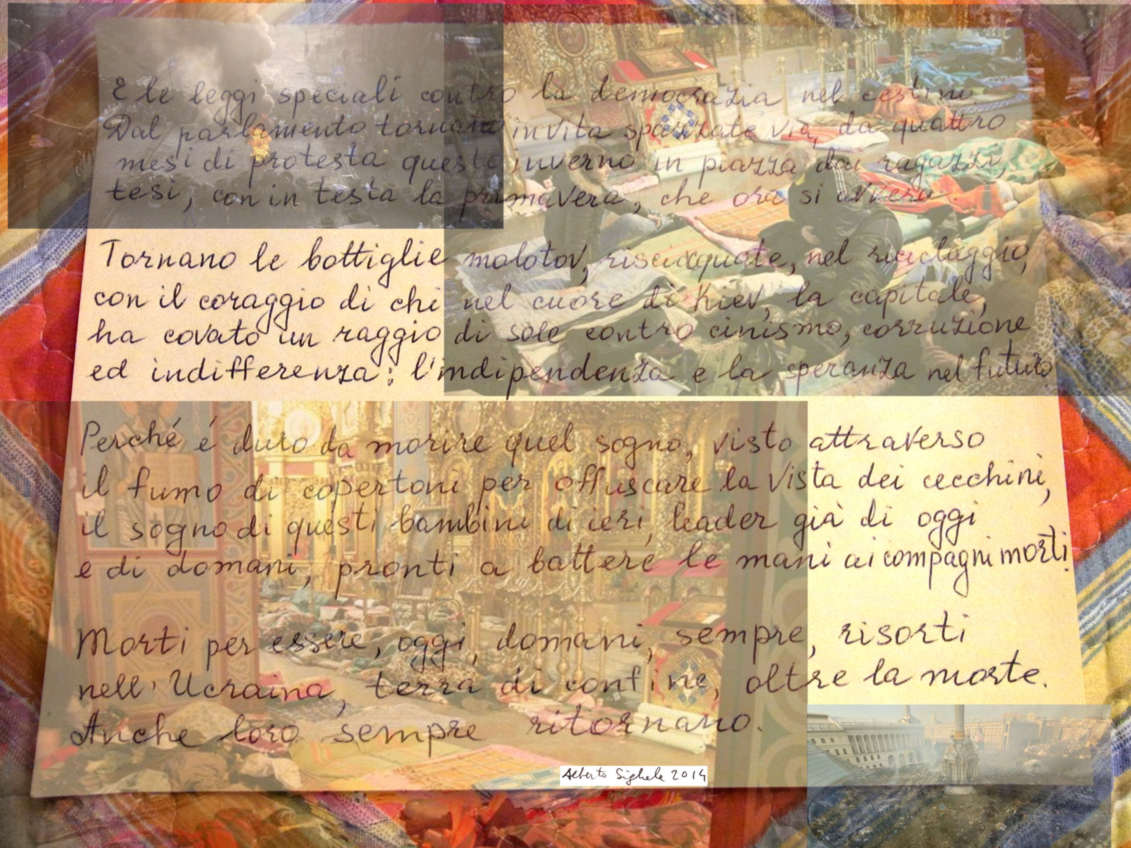 E le leggi speciali contro la democrazia nel cestino
Dal parlamento tornano in vita spazzate via, da quattro
mesi di protesta questo inverno in piazza dai ragazzi,
tesi, con in testa la primavera, che ora si avvera.
Tornano le bottiglie molotov, risciacquate, nel riciclaggio,
con il coraggio di chi nel cuore di Kiev, la capitale,
ha covato un raggio di sole contro cinismo, corruzione
ed indifferenza: l'indipendenza e la speranza nel futuro
Perché é duro da morire quel sogno, visto attraverso
il fumo di copertoni per offuscare la vista dei cecchini,
il sogno di questi bambini di ieri, leader già di oggi
e di domani, pronti a battere le mani ai compagni morti.
Morti per essere, oggi, domani, sempre, risorti
nell'Ucraina, terra di confine, oltre la morte.
Anche loro sempre ritornano.
Alberto Sighele 2014